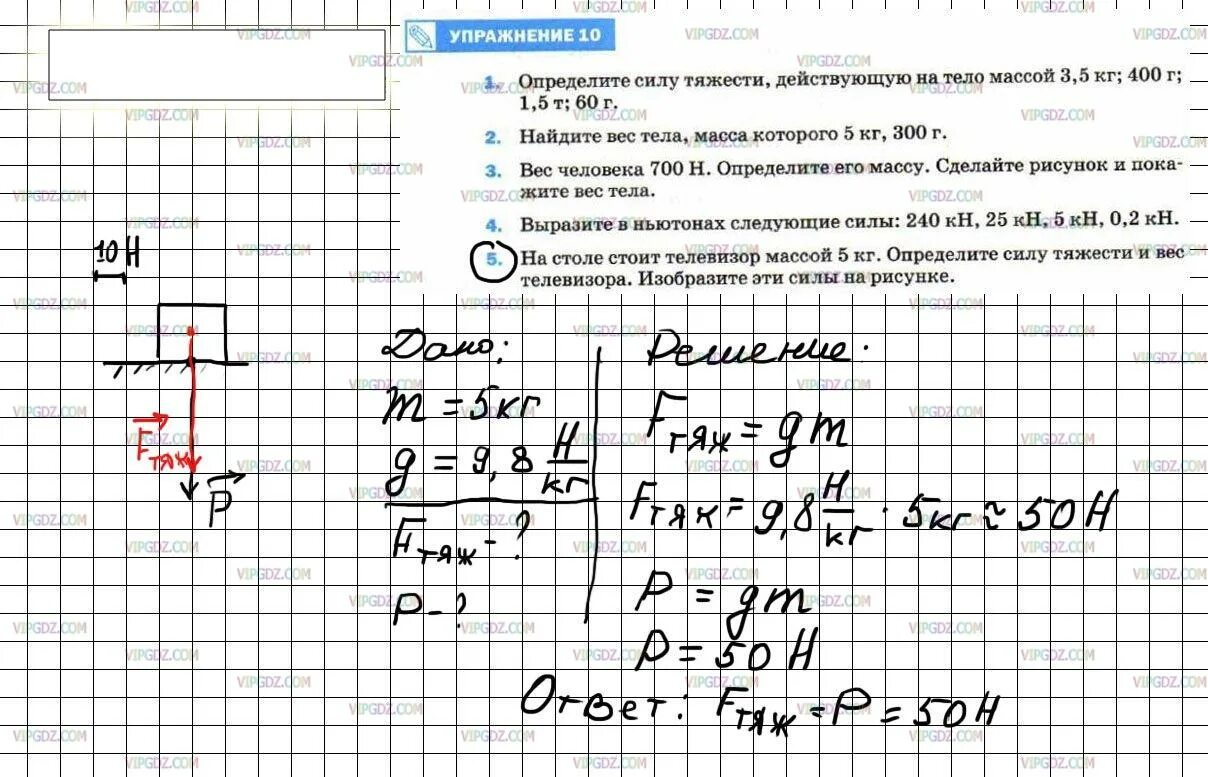 УПРАЖНЕНИЕ 10
1. Определите силу тяжести, действующую на тело массой 3,5 кг; 400 г;
1,5 т; 60 г.
2. Найдите вес тела, масса которого 5 кг, 300 г.
3. Вес человека 700 Н. Определите его массу. Сделайте рисунок и пока-
жите вес тела.
4. Выразите в ньютонах следующие силы: 240 кН, 25 кН, 5 кН, 0,2 кН.
5. На столе стоит телевизор массой 5 кг. Определите силу тяжести и вес
телевизора. Изобразите эти силы на рисунке.
10 Н
Fтяж
P
Дано:
m = 5 кг
g = 9,8 Н/кг
Fтяж - ?
P - ?
Решение:
Fтяж = gm
Fтяж = 9,8 Н/кг · 5 кг ≈ 50 Н
P = gm
P = 50 Н
Ответ: Fтяж = P = 50 Н
VIPGDZ.COM